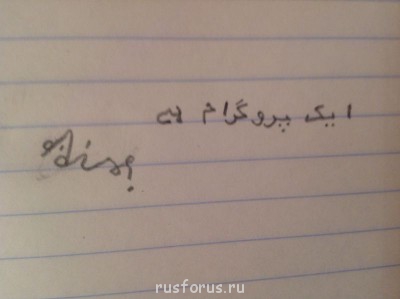 ایک پروگرام ہے
rusforus.ru